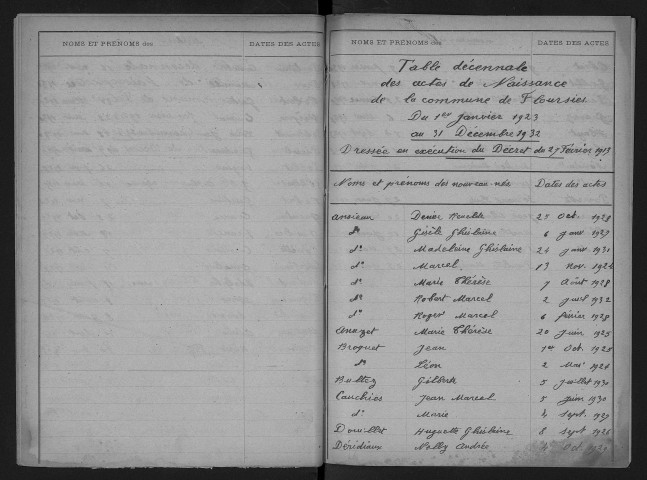 NOMS ET PRÉNOMS des DATES DES ACTES
NOMS ET PRÉNOMS des DATES DES ACTES
Table décennale
des actes de Naissance
de la commune de Floursies
Du 1er Janvier 1923
au 31 Décembre 1932
Dressée en exécution du Decret du 27 Février 1919
Noms et prénoms des nouveau-nés Dates des actes
Ansieux Oct. 1928
do Gisèle Ghislaine 6 janv
do Madeleine Ghislaine 24 janv 1931
do Marcel 13 nov. 1924
do Marie Thérèse 7 Août 1928
do Robert Marcel 2 1932
do Roger Marcel 6 février 1928
Marie Thérèse 20 juin 1925
Broquet Jean 1er Oct
do Léon 2 Mai 1924
Bultez Gilberte 5 juillet 1930
Cauchies Jean Marcel 5 juin 1930
do Marie 4 sept.
Douillet Huguette Ghislaine 8 sept
Déridiaux Nelly Andrée Oct